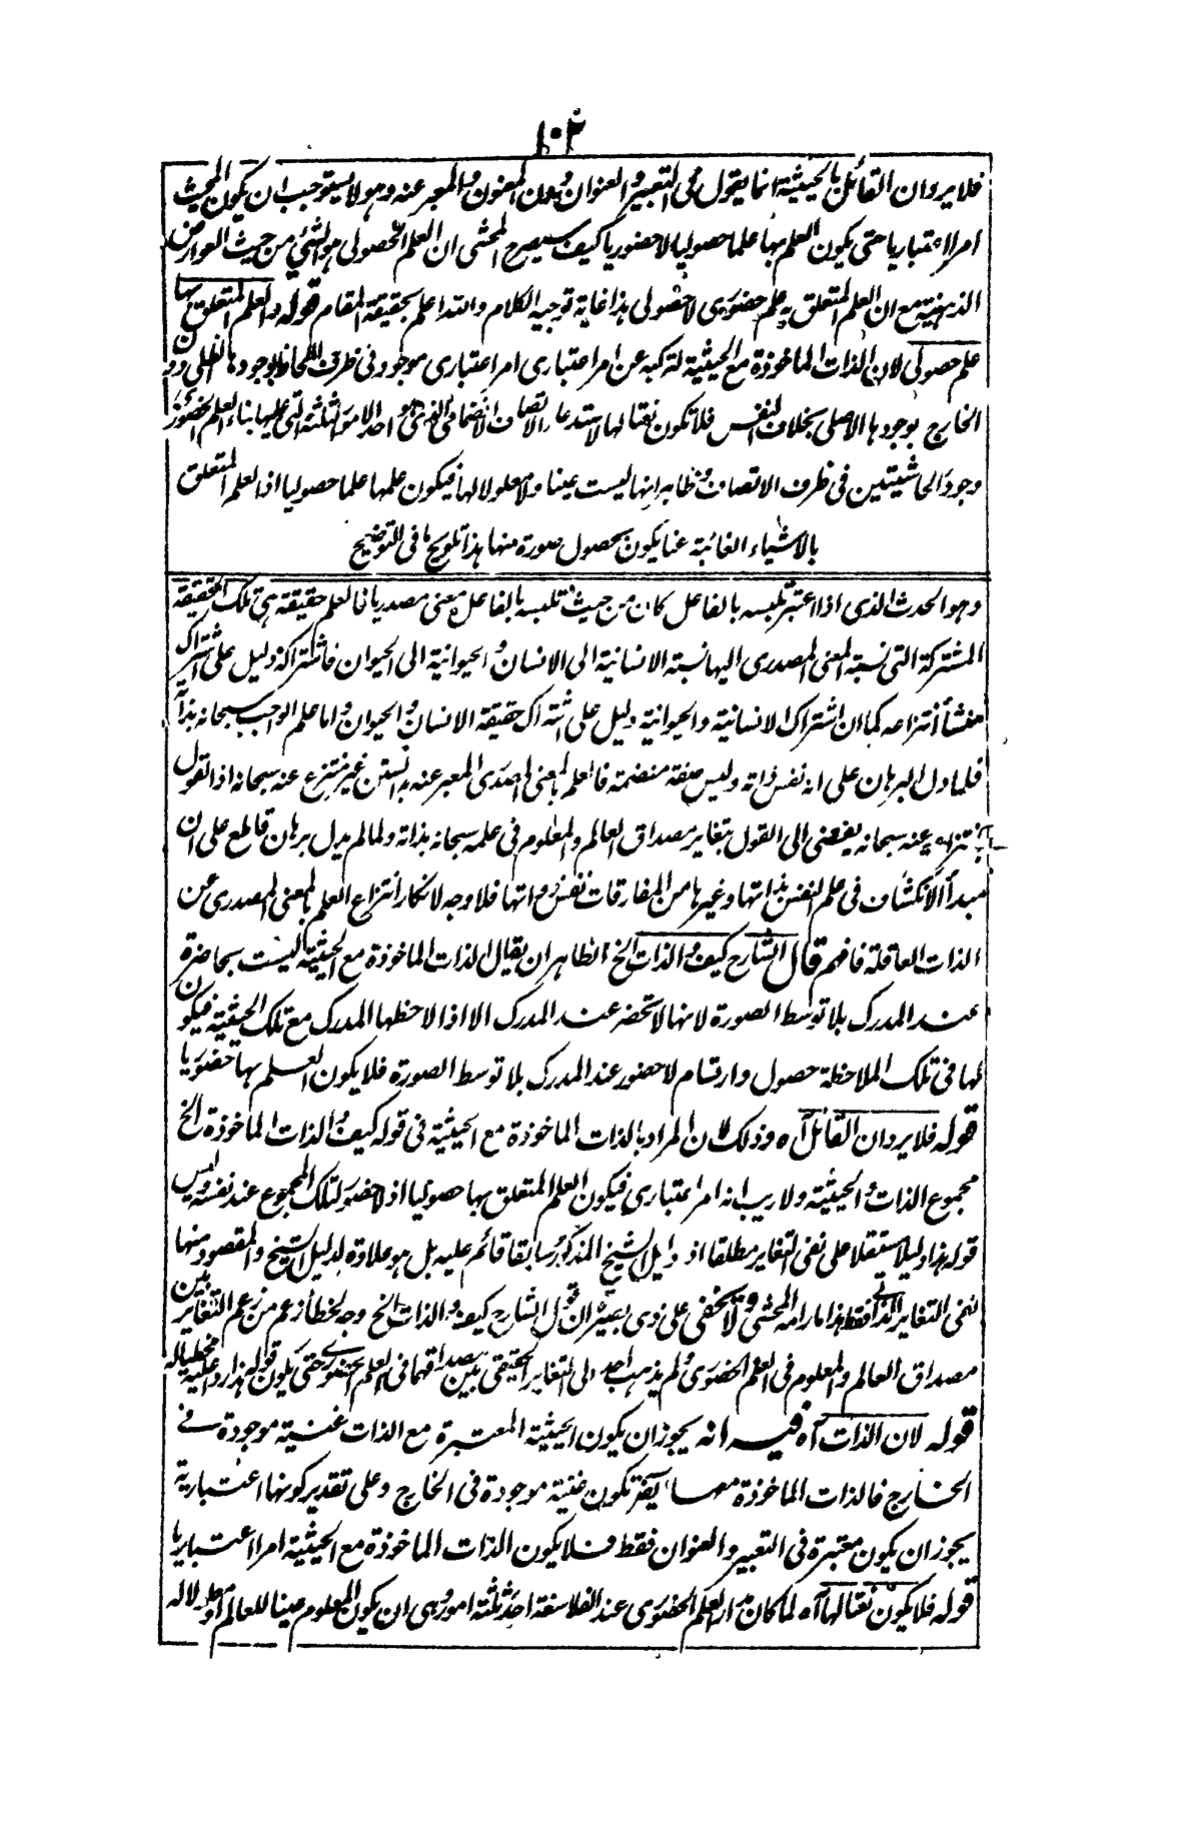 ١٠٢
فلا يرد ان القائل بالحيثية انما يقول فى التعبير والعنوان دون المعنون والمعبر عنه وهو لا يستوجب ان يكون المحيث
امرا اعتباريا حتى يكون العلم بها علما حصوليا لا حضوريا كيف سيصرح المحشى ان العلم الحصولى هو الشئ من حيث العوارض
الذهنية مع ان العلم المتعلق به علم حضورى لا حصولى هذا غاية توجيه الكلام والله اعلم بحقيقة المقام قوله والعلم المتعلق بها
علم حصولى لان الذات الماخوذة مع الحيثية لتركبه عن امر اعتبارى امر اعتبارى موجود فى ظرف اللحاظ بوجودها الظلى دون
الخارج بوجودها الاصلى بخلاف النفس فلا تكون نعتا لها لاستدعاء الاتصاف الانضمامى الذى هو احد الامور الثلثة التى عليها بناء العلم الحضورى
وجود الحاشيتين فى ظرف الاتصاف وظاهر انها ليست عينا ولا معلولا لها فيكون علمها علما حصوليا اذ العلم المتعلق
بالاشياء الغائبة عنا يكون بحصول صورة منها هذا تلويح ما فى التوضيح
وهو الحدث الذى اذا اعتبر تلبسه بالفاعل كان من حيث تلبسه بالفاعل معنى مصدريا فالعلم حقيقة هى تلك الحقيقة
المشتركة التى نسبة المعنى المصدرى اليها نسبة الانسانية الى الانسان والحيوانية الى الحيوان فاشتراكه دليل على اشتراك
منشأ انتزاعه كما ان اشتراك الانسانية والحيوانية دليل على اشتراك حقيقة الانسان والحيوان واما علم الواجب سبحانه بذاته
فلما دل البرهان على انه نفس ذاته وليس صفة منضمة فالعلم بالمعنى المصدرى المعبر عنه بدانستن غير منتزع عنه سبحانه اذ القول
بانتزاعه عنه سبحانه يفضى الى القول بتغاير مصداق العالم والمعلوم فى علمه سبحانه بذاته ولما لم يدل برهان قاطع على ان
مبدأ الانكشاف فى علم النفس بذاتها وغيرها من المفارقات نفس ذواتها فلا وجه لانكار انتزاع العلم بالمعنى المصدرى عن
الذات العاقلة فافهم قال الشارح كيف والذات الخ الظاهر ان يقال الذات الماخوذة مع الحيثية ليست بحاضرة
عند المدرك بلا توسط الصورة لانها لا تحضر عند المدرك الا اذا لاحظها المدرك مع تلك الحيثية فيكون
لها فى تلك الملاحظة حصول وارتسام لا حضور عند المدرك بلا توسط الصورة فلا يكون العلم بها حضوريا
قوله فلا يرد ان القائل آه وذلك لان المراد بالذات الماخوذة مع الحيثية فى قوله كيف والذات الماخوذة الخ
مجموع الذات والحيثية ولا ريب انه امر اعتبارى فيكون العلم المتعلق بها حصوليا اذ لا حضور لتلك المجموع عند نفسه وليس
قوله هذا دليلا مستقلا على نفى التغاير مطلقا اذ دليل الشيخ المذكور سابقا قائم عليه بل هو علاوة لدليل الشيخ والمقصود منها
نفى التغاير الذاتى فقط هذا ما رامه المحشى ولا يخفى على ذى بصيرة ان قول الشارح كيف والذات الخ وجه لخطأ زعم من زعم التغاير بين
مصداق العالم والمعلوم فى العلم الحضورى ولم يذهب احد الى التغاير الحقيقى بين مصداقهما فى العلم الحضورى حتى يكون قوله هذا رد عليه وتخطيا له
قوله لان الذات آه فيه انه يجوز ان يكون الحيثية المعتبرة مع الذات عينية موجودة فى
الخارج فالذات الماخوذة معها ايضا تكون عينية موجودة فى الخارج وعلى تقدير كونها اعتبارية
يجوز ان يكون معتبرة فى التعبير والعنوان فقط فلا يكون الذات الماخوذة مع الحيثية امرا اعتباريا
قوله فلا يكون نعتا لها آه لما كان مدار العلم الحضورى عند الفلاسفة احد ثلثة امور وهى ان يكون المعلوم عينا للعالم او معلولا له